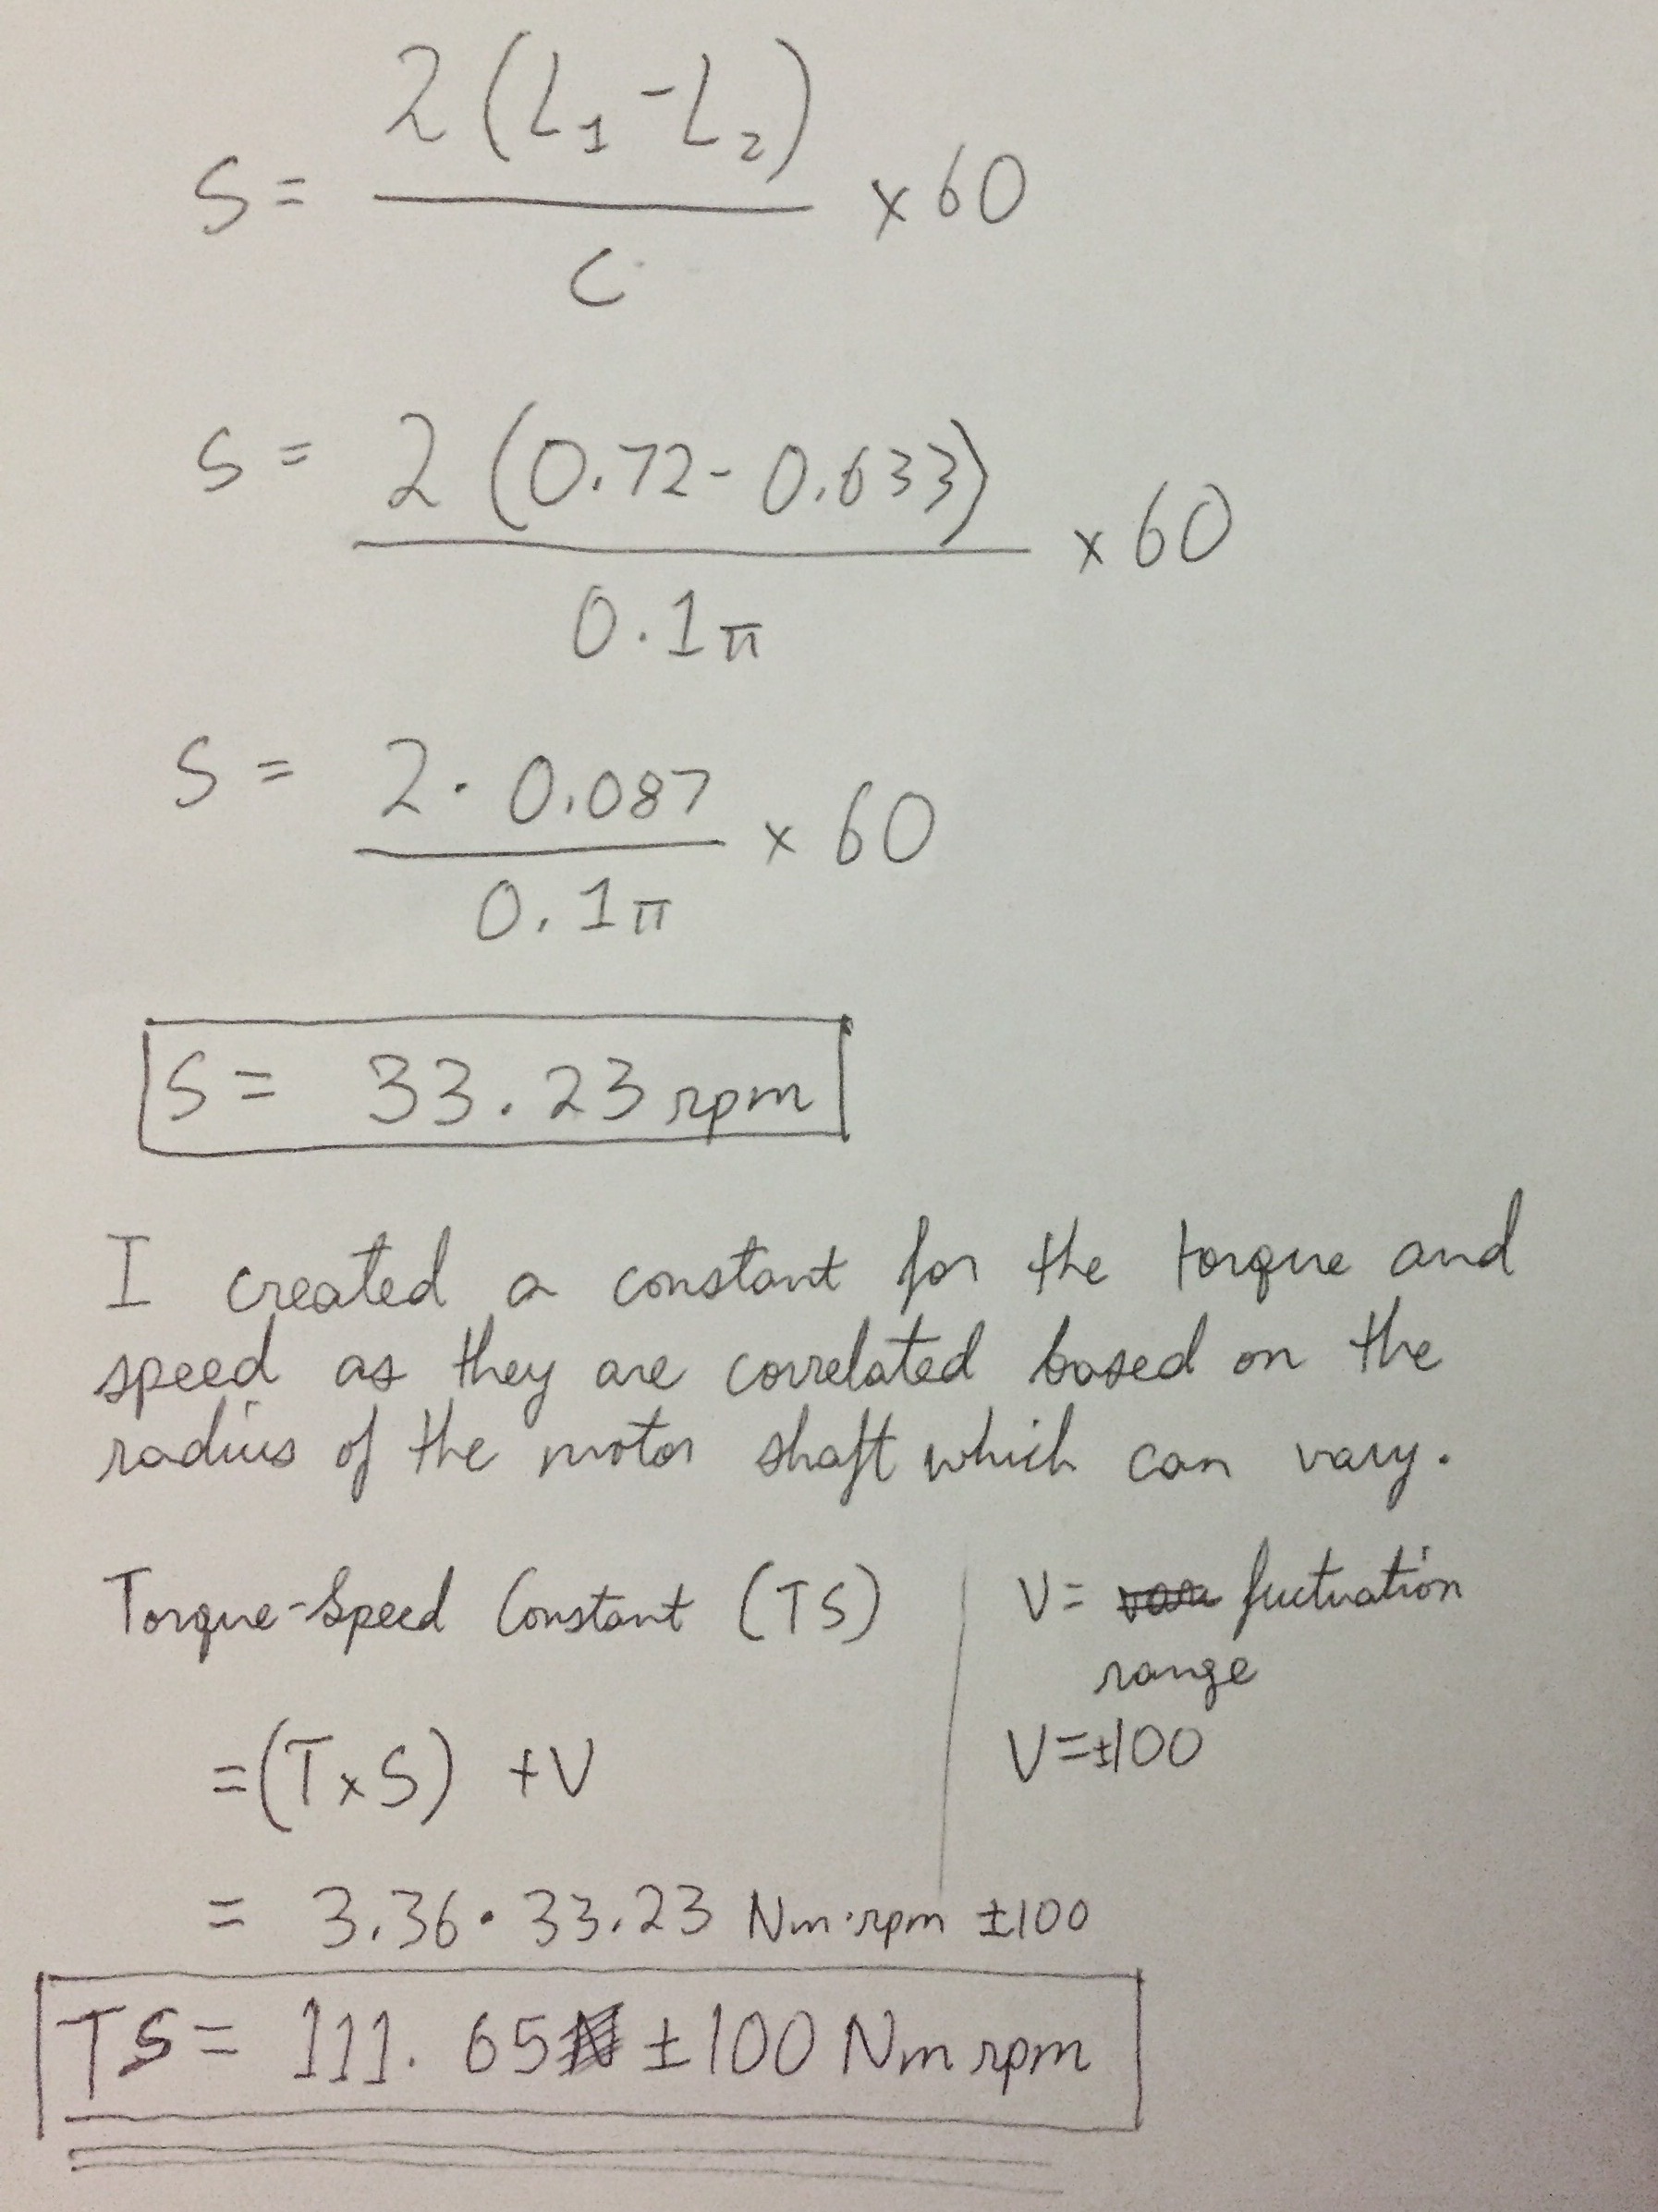 S = 2(L₁-L₂) / C × 60
S = 2(0.72-0.633) / 0.1π × 60
S = 2·0.087 / 0.1π × 60
S = 33.23 rpm
I created a constant for the torque and
speed as they are correlated based on the
radius of the motor shaft which can vary.
Torque-Speed Constant (TS)
= (T×S) +V
V= fuctuation
range
V=±100
= 3.36·33.23 Nm·rpm ±100
TS = 111.65 ±100 Nm rpm